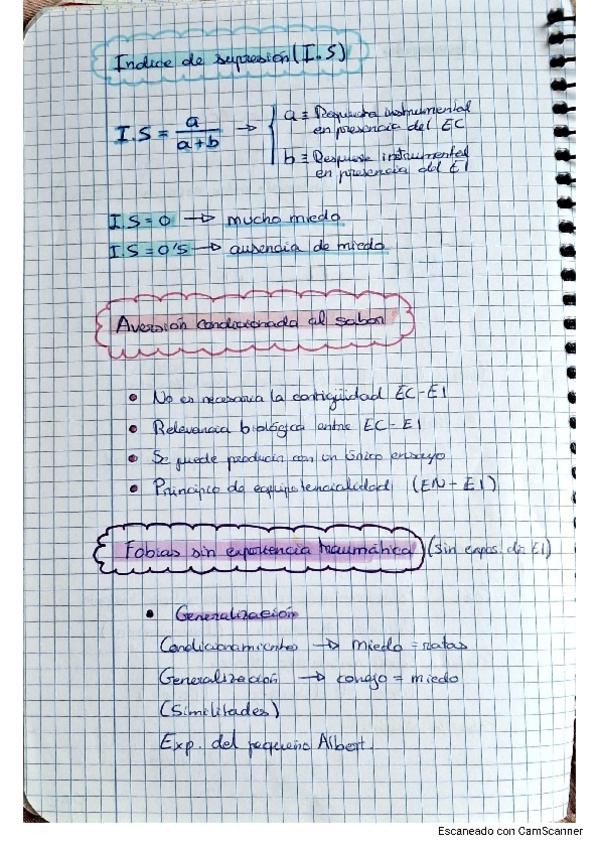 Indice de supresión (I.S)
I.S = a / a+b → a ≡ Respuesta instrumental
en presencia del EC
b ≡ Respuesta instrumental
en presencia del EI
I.S = 0 → mucho miedo
I.S = 0'5 → ausencia de miedo
Aversión condicionada al sabor
• No es necesaria la contigüidad EC-EI
• Relevancia biológica entre EC-EI
• Se puede producir con un único ensayo
• Principio de equipotencialidad (EN-EI)
Fobias sin experiencia traumática (sin expos. de EI)
• Generalización
Condicionamiento → miedo = ratas
Generalización → conejo = miedo
(Similitudes)
Exp. del pequeño Albert.
Escaneado con CamScanner